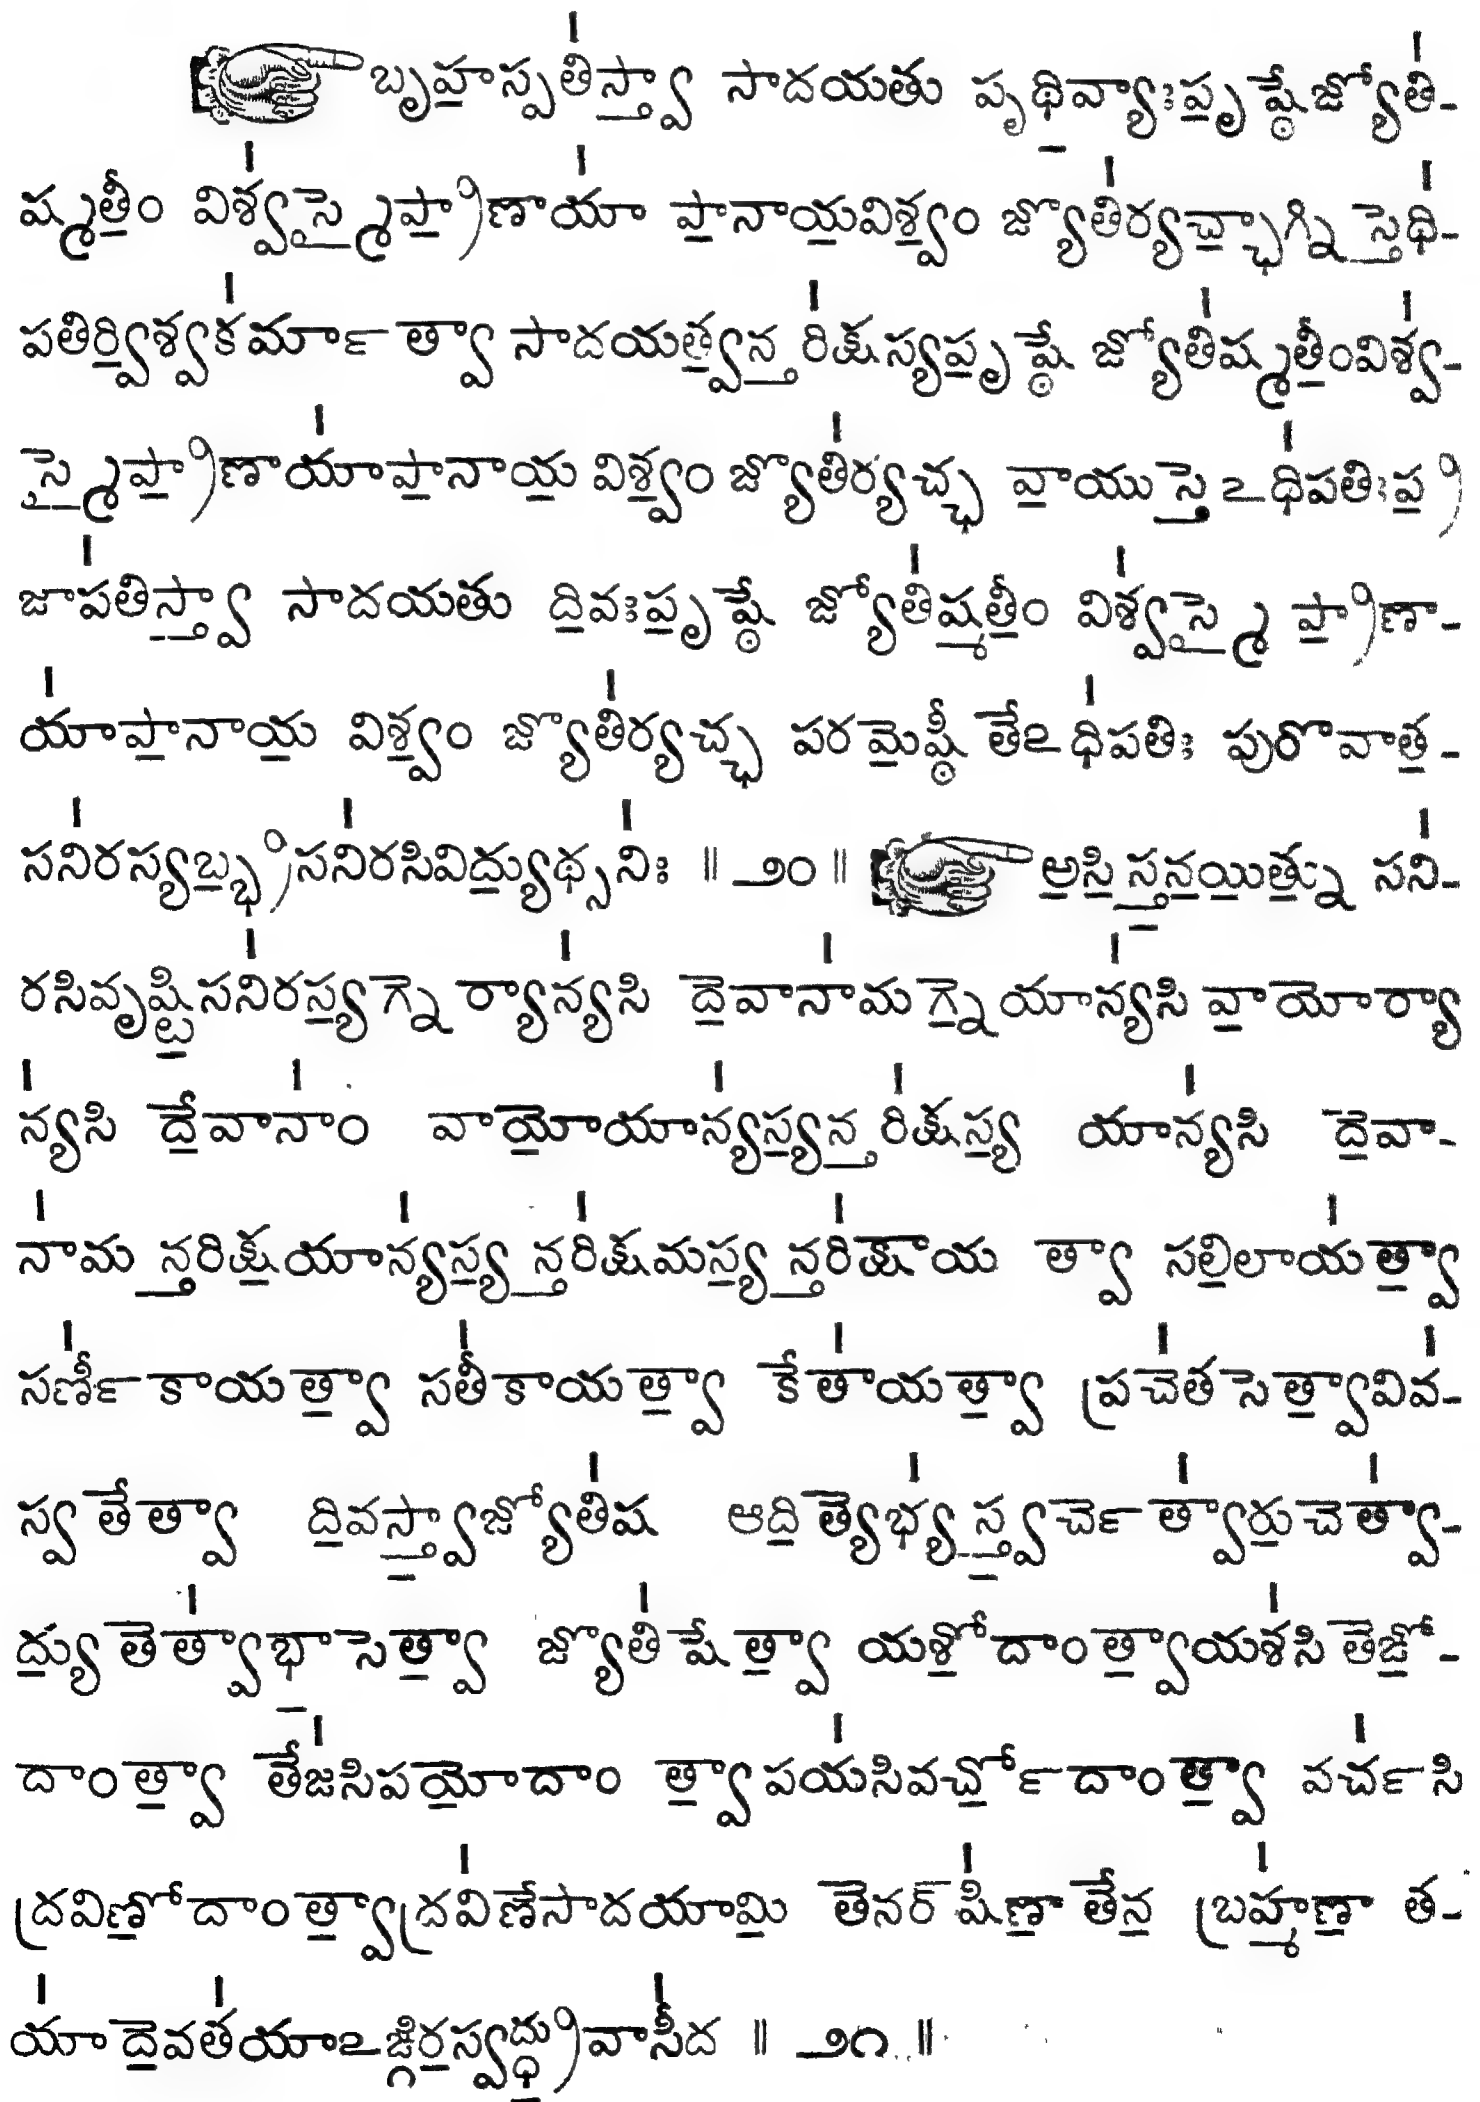 బృహ॒స్పతి॑స్త్వా॒ సాదయతు పృథి॒వ్యాఃపృ॒ష్ఠేజ్యోతి॑-
ష్మతీం॒ విశ్వ॑స్మై॒ప్రా॒ణాయా॑ పా॒నాయ॒విశ్వం॒ జ్యోతి॑ర్యచ్ఛా॒గ్ని స్తేధి॑-
పతిర్వి॒శ్వక॑ర్మా త్వా సాదయత్వ॒న్తరి॑క్షస్యపృ॒ష్ఠే జ్యోతి॑ష్మతీం॒విశ్వ॑-
స్మై॒ప్రా॒ణాయా॑పా॒నాయ॒ విశ్వం॒ జ్యోతి॑ర్యచ్ఛ వా॒యుస్తే॒ఽధి॑పతిఃప్ర॒
జాప॑తిస్త్వా॒ సాదయతు ది॒వఃపృ॒ష్ఠే జ్యోతి॑ష్మతీం॒ విశ్వ॑స్మై॒ ప్రా॒ణా-
యా॑పా॒నాయ॒ విశ్వం॒ జ్యోతి॑ర్యచ్ఛ పరమే॒ష్ఠీ తేఽధి॑పతిః పురోవాత॒-
సని॑రస్యబ్భ్ర॒సని॑రసివిద్యు॒థ్సని॑ః ॥ ౨౦ ॥ అ॒సి॒ స్త॒న॒యి॒త్ను॒ సని॑-
రసివృష్టి॒సని॑రస్య॒గ్నే ర్యాన్య॑సి దే॒వానా॑మగ్నే॒యాన్య॑సి వా॒యోర్యా
న్య॑సి దే॒వానాం॑ వాయో॒యాన్య॑స్య॒న్తరి॑క్షస్య॒ యాన్య॑సి దే॒వా-
నా॑మన్త॒రిక్ష॒యాన్య॑స్య॒న్తరి॑క్షమస్య॒న్తరి॑క్షాయ త్వా సలి॒లాయ॑త్వా॒
సర్ణీ॑కాయత్వా॒ సతీ॑కాయత్వా॒ కేతా॑యత్వా॒ ప్రచే॑తసేత్వా॒వివ॑-
స్వతేత్వా ది॒వస్త్వా॒జ్యోతి॑ష ఆది॒త్యేభ్య॑స్త్వ॒ర్చే త్వా॑రు॒చేత్వా॑-
ద్యు॒తేత్వా॑భా॒సేత్వా॒ జ్యోతి॑షేత్వా॒ యశో॒దాంత్వా॒యశ॑సి తేజో॒-
దాంత్వా॒ తేజ॑సిపయో॒దాం త్వా॒పయ॑సివర్చో॒దాంత్వా॒ వర్చ॑సి
ద్రవిణో॒దాంత్వా॒ద్రవి॑ణేసాదయామి॒ తేనర్షి॑ణా॒ తేన॒ బ్రహ్మ॑ణా॒ త-
యా॑ దే॒వత॑యాఽఙ్గిర॒స్వద్ధ్రు॒వాసీ॑ద ॥ ౨౧ ॥